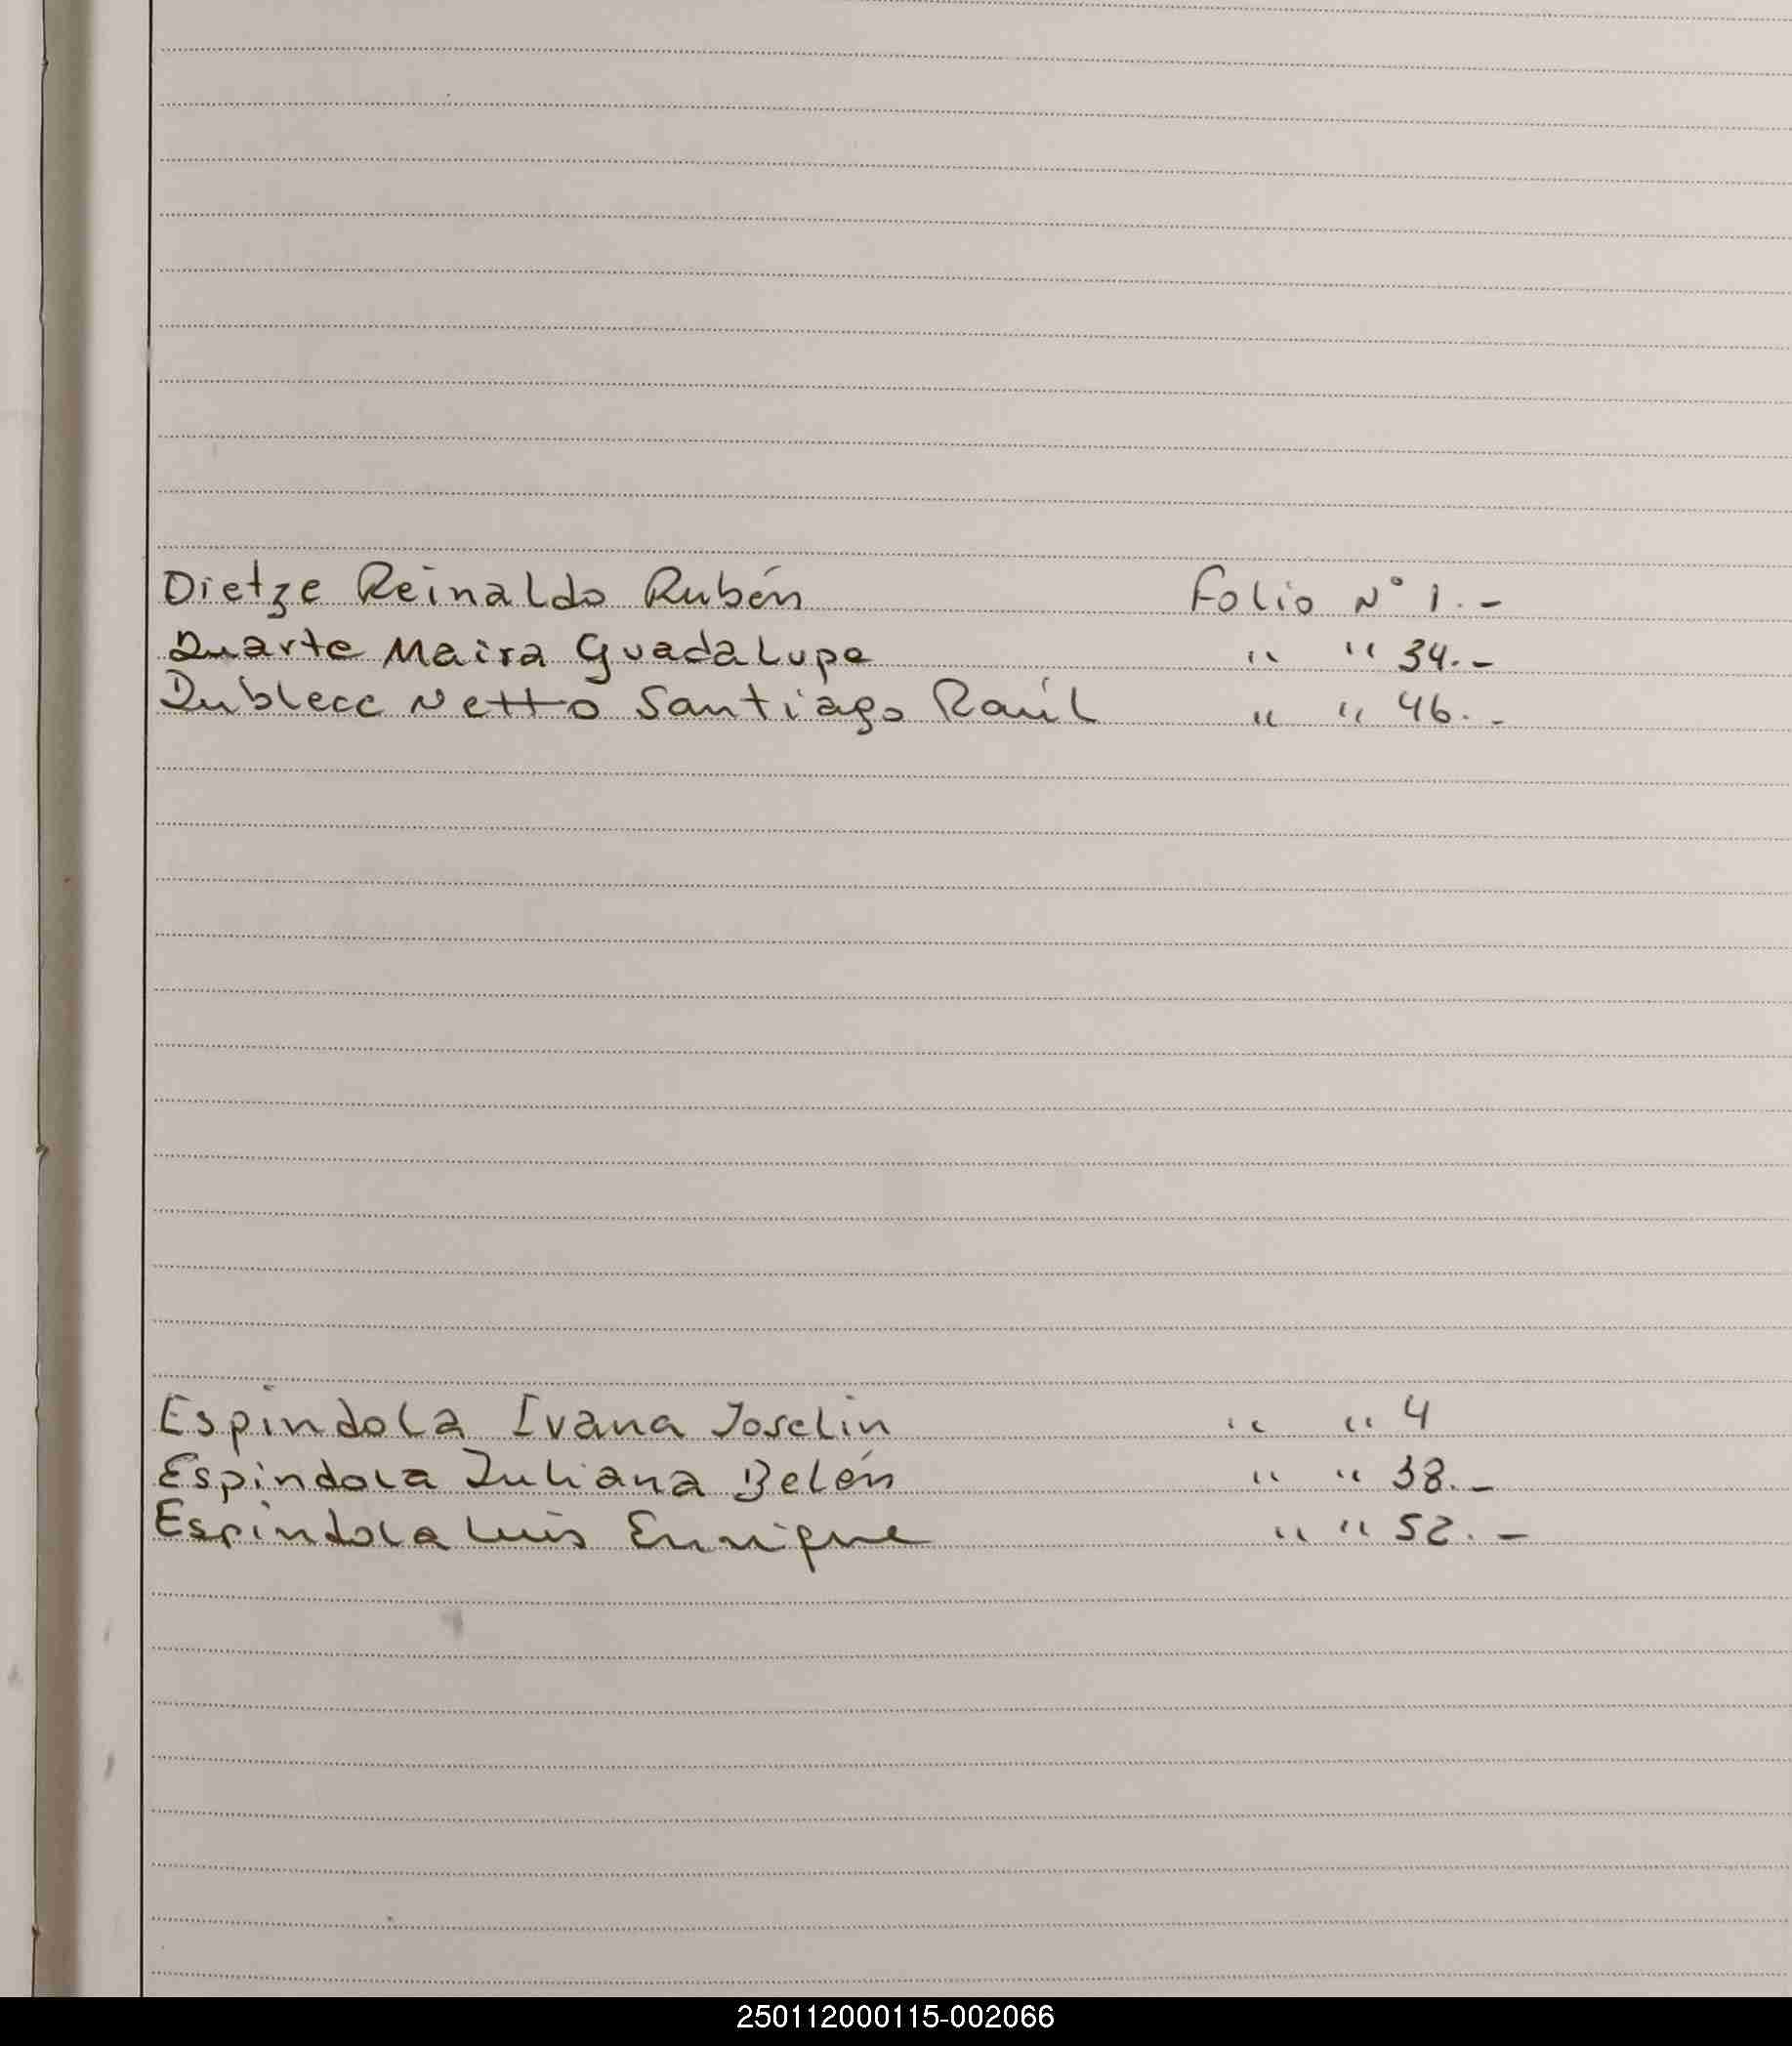 Dietze Reinaldo Rubén Folio N° 1.-
Duarte Maira Guadalupe " " 34.-
Dublecc Netto Santiago Raúl " " 46.-
Espindola Ivana Joselin " " 4
Espindola Juliana Belén " " 38.-
Espindola Luis Enrique " " 52.-
250112000115-002066